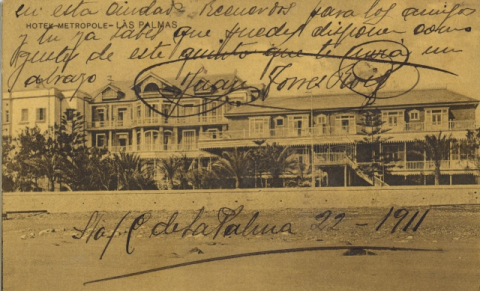 en esta ciudad. Recuerdos para los amigos
HOTEL METROPOLE – LAS PALMAS
y tu ya sabes que puedes disponer como
gustes de este que te envia un
abrazo
Juan Torres
Sta/C de La Palma 22 - 1911